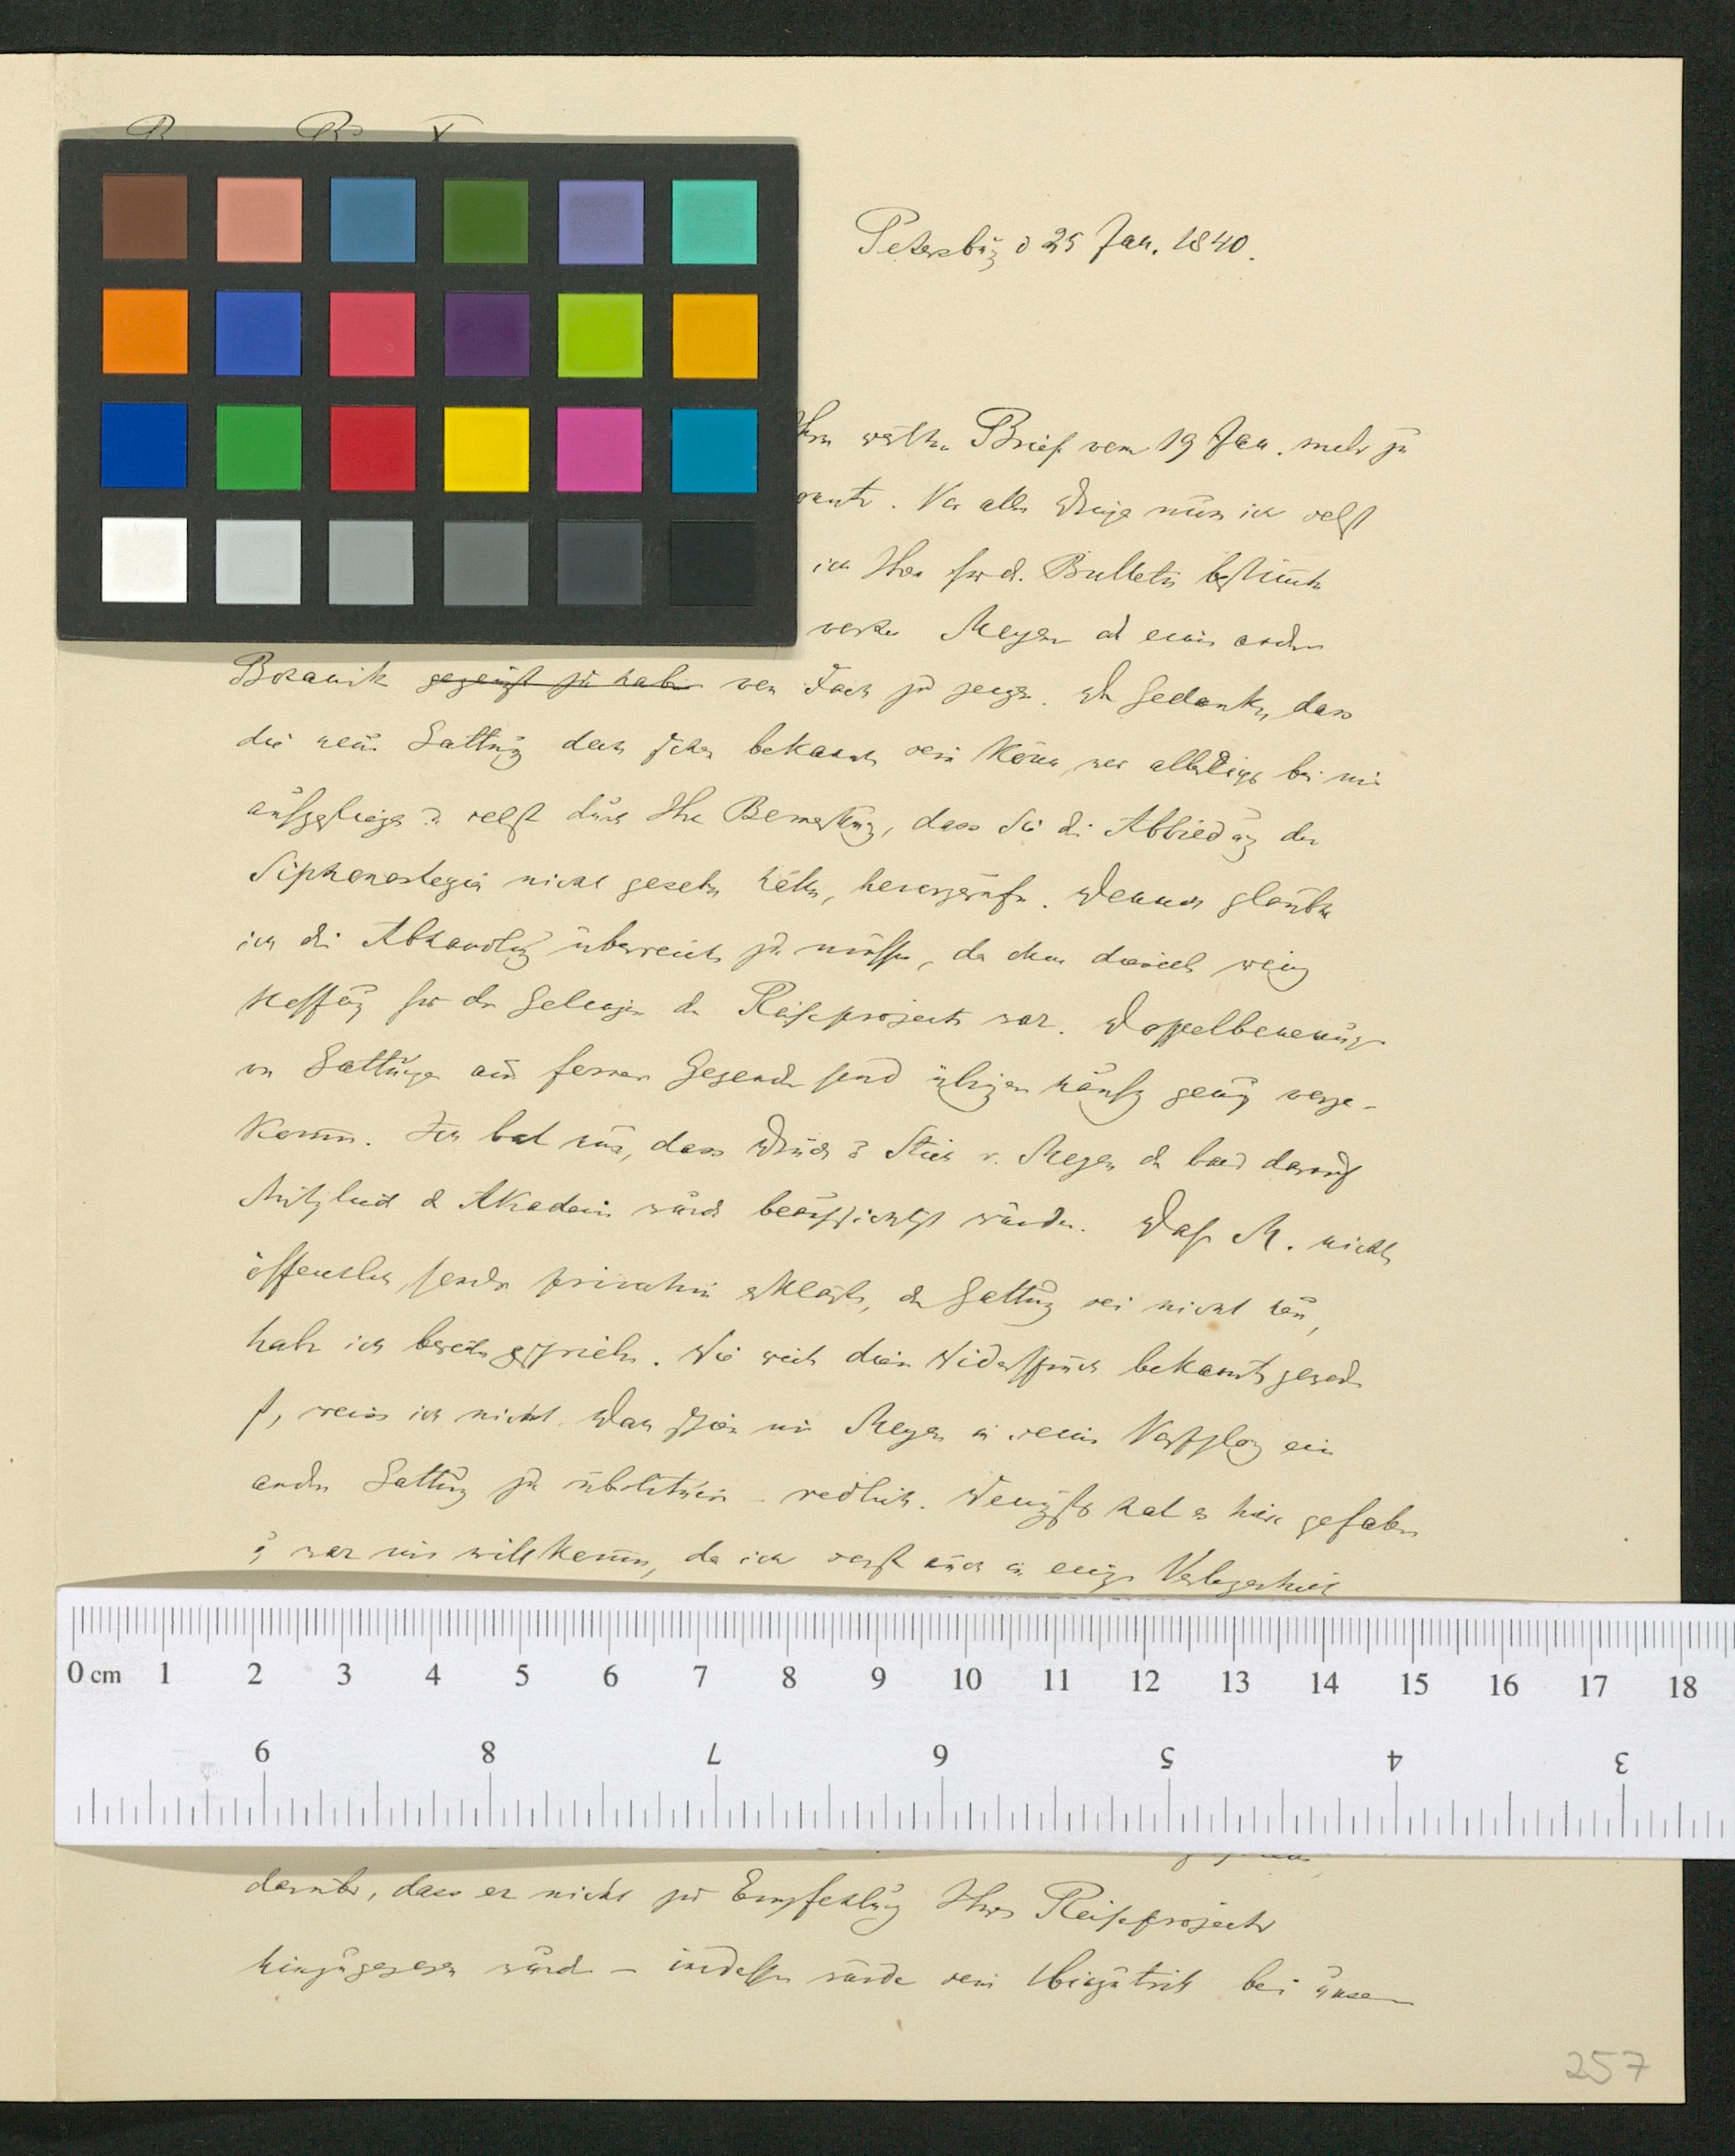 Petersburg d 25 Jan. 1840.
Ihren werthen Brief vom 19 Jan. mehr zu
Vor allen Dinge muss ich selbst
ich Ihre für d. Bulletin bestimmte
vorher Meyer od einem andern
Botanik gezeigt zu haben von Fach zu zeigen. Der Gedanke, dass
die neue Gattung doch schon bekannt sein könne, war allerdings bei mir
aufgestiegen u. selbst durch Ihre Bemerkung, dass Sie die Abbildung der
Siphonostegia nicht gesehen hätten, hervorgerufen. Dennoch glaubte
ich die Abhandlung überreichen zu müssen, da ohne dieselbe wenig
Hoffnung für das Gelingen des Reiseprojects war. Doppelbenennungen
von Gattungen aus fernen Gegenden sind übrigens häufig genug vorge-
kommen. Ich bat nur, dass Druck u. Stich v. Meyer der bald darauf
Mitglied d Akademie wurde beaufsichtigt würden. Dass M. nicht
öffentlich, sondern privatim erklärte, die Gattung sei nicht neu,
habe ich bereits geschrieben. Wie weit dieser Widerspruch bekannt geworden
ist, weiss ich nicht. Dann schien mir Meyer in seinem Vorschlag eine
andere Gattung zu substituiren - redlich. Wenigstens hat es hier gefallen
u. war mir willkommen, da ich sonst auch in einige Verlegenheit
0 cm 1 2 3 4 5 6 7 8 9 10 11 12 13 14 15 16 17 18
9 8 7 6 5 4 3
darüber, dass er nicht zur Empfehlung Ihres Reiseprojects
hinzugezogen wurde – indessen würde sein Hinzutritt bei unserm
257